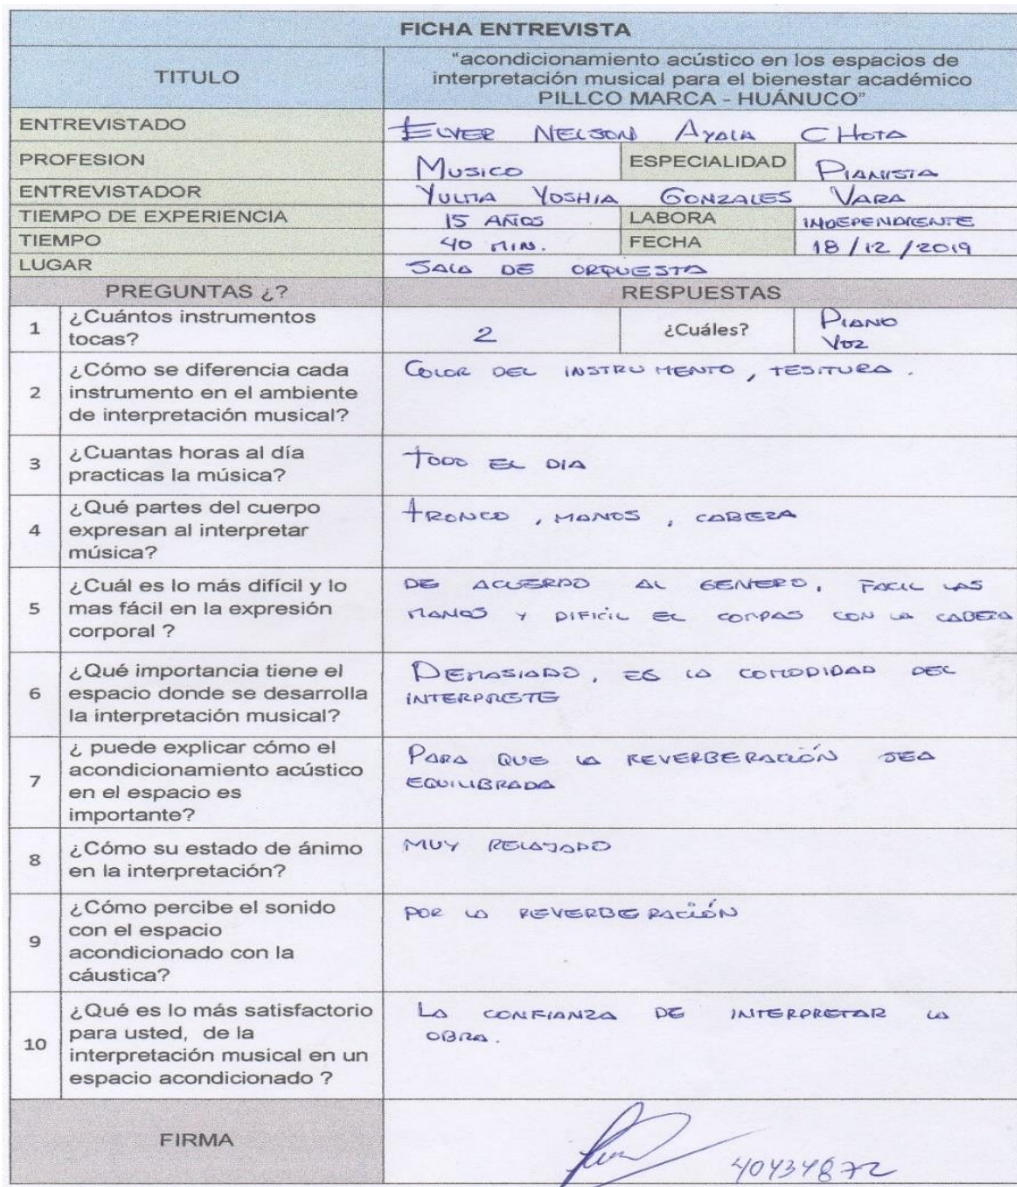 FICHA ENTREVISTA
TITULO
"acondicionamiento acústico en los espacios de
interpretación musical para el bienestar académico
PILLCO MARCA - HUÁNUCO"
ENTREVISTADO ELVER NELSON AYALA CHOTA
PROFESION MUSICO ESPECIALIDAD PIANISTA
ENTREVISTADOR YULITA YOSHIA GONZALES VARA
TIEMPO DE EXPERIENCIA 15 AÑOS LABORA INDEPENDIENTE
TIEMPO 40 MIN. FECHA 18/12/2019
LUGAR SALA DE ORQUESTA
PREGUNTAS ¿? RESPUESTAS
1 ¿Cuántos instrumentos
tocas?
2 ¿Cuáles? PIANO
VOZ
2 ¿Cómo se diferencia cada
instrumento en el ambiente
de interpretación musical?
COLOR DEL INSTRUMENTO, TESITURA.
3 ¿Cuantas horas al día
practicas la música?
TODO EL DIA
4 ¿Qué partes del cuerpo
expresan al interpretar
música?
TRONCO, MANOS, CABEZA
5 ¿Cuál es lo más difícil y lo
mas fácil en la expresión
corporal ?
DE ACUERDO AL GENERO, FACIL LAS
MANOS Y DIFICIL EL COMPAS CON LA CABEZA
6 ¿Qué importancia tiene el
espacio donde se desarrolla
la interpretación musical?
DEMASIADO, ES LA COMODIDAD DEL
INTERPRETE
7 ¿ puede explicar cómo el
acondicionamiento acústico
en el espacio es
importante?
PARA QUE LA REVERBERACIÓN SEA
EQUILIBRADA
8 ¿Cómo su estado de ánimo
en la interpretación?
MUY RELAJADO
9 ¿Cómo percibe el sonido
con el espacio
acondicionado con la
cáustica?
POR LA REVERBERACIÓN
10 ¿Qué es lo más satisfactorio
para usted, de la
interpretación musical en un
espacio acondicionado ?
LA CONFIANZA DE INTERPRETAR LA
OBRA.
FIRMA
40434872